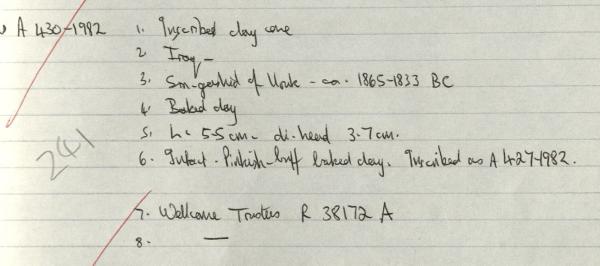 A 430-1982 1. Inscribed clay cone
2 Iraq -
3. Sin-gashid of Uruk - ca. 1865-1833 BC
4. Baked clay
5. L. 5.5cm. di. head 3.7cm.
241
6. Intact. Pinkish-buff baked clay. Inscribed as A 427-1982.
7. Wellcome Trustees R 38172 A
8. —